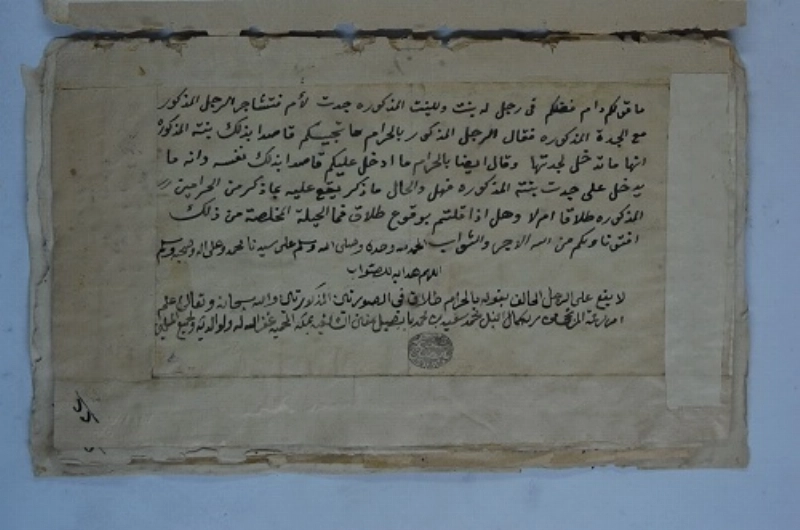 ما قولكم دام فضلكم في رجل له بنت وللبنت المذكوره جدت لأم فتشاجر الرجل المذكور
مع الجدة المذكوره فقال الرجل المذكور بالحرام ما تجيكم قاصدا بذلك بنته المذكوره
انها ما تدخل لجدتها وقال ايضا بالحرام ما ادخل عليكم قاصدا بذلك نفسه وانه ما
يدخل على جدت بنته المذكوره فهل والحال ما ذكر يقع عليه بما ذكر من الحرامين
المذكوره طلاقا ام لا وهل اذا قلتم بوقوع طلاق فما الحيلة المخلصة من ذلك
افتونا ولكم من الله الاجر والثواب الحمد لله وحده وصلى الله وسلم على سيدنا محمد وعلى اله وصحبه وسلم
اللهم هداية للصواب
لا يقع على الرجل الحالف بقوله بالحرام طلاق في الصورتين المذكورتين والله سبحانه وتعالى اعلم
امر برقمه المرتجي من ربه كمال النيل محمد سعيد بن محمد بابصيل مفتي الشافعيه بمكة المحميه غفر الله له ولوالديه ولجميع المسلمين